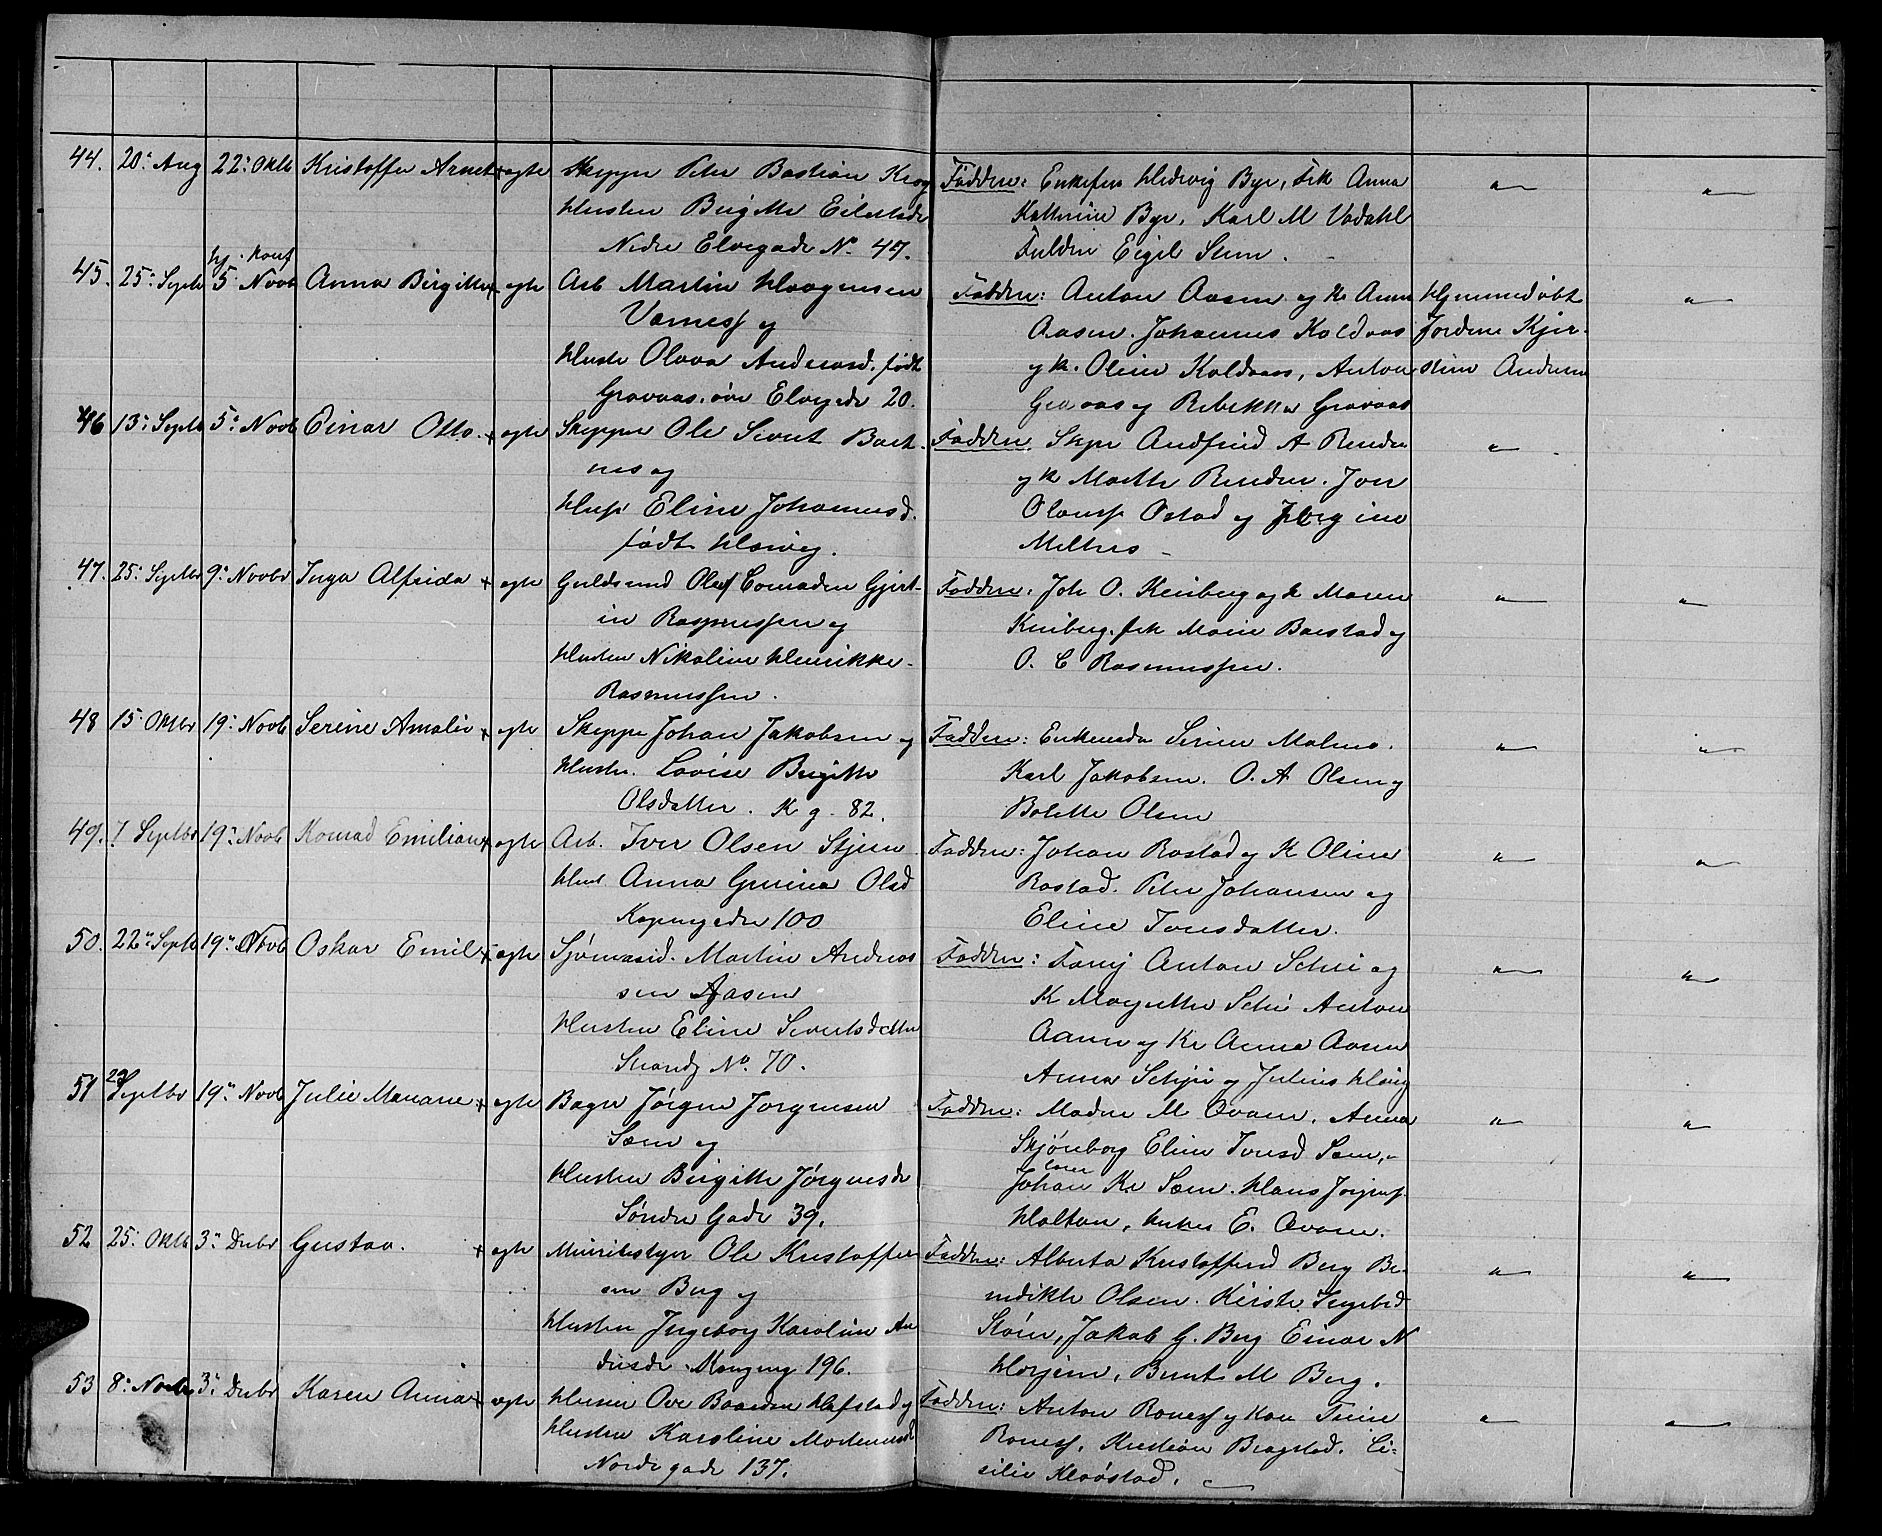 44. 20de Aug 22de Oktb Kristoffer Arnet + ægte Skipper Peter Bastian Krog
Hustru Birgitte Eilertsdr
Nedre Elvegade No 47.
Faddere: Enkefru Hedevig Bye, Frk Anna
Kathrine Bye, Karl M Vodahl
Fuldm Eigil Steen.
45. 25de Septb hj. Konf 5 Novb Anna Birgitte + ægte Arb Martin Haagensen
Værnes og
Hustr Olava Andersd. født
Gravaas, øvre Elvegade 20.
Faddere: Anton Aasen og K Anna
Aasen. Johannes Koldaas
og K. Oline Koldaas, Anton
Gravaas og Rebekka Gravaas
Hjemmedøbt
Jordem Kjer-
stine Andersen
46 13de Septb 5te Novb Einar Otto. + ægte Skipper Ole Sivert Bart-
nes og
Hust Eline Johannesd.
født
Faddere. Skpr Andfind A Renden
og K Marthe Renden. Jon
Olaus Ostad og Jørgine
Melhus
47. 25de Septbr 9de Novbr Inga Alfrida + ægte Guldsmed Oluf Conradin Gjert-
in Rasmussen og
Hustru Nikoline Henrikke
Rasmussen.
Faddere: Joh O. Reinberg og K Maren
Reinberg. frk Marie Barstad og
O. C Rasmussen.
48 15 Oktbr 19de Novb Serine Amalie + ægte Skipper Johan Jakobsen og
Hustr. Lovise Birgitte
Olsdatter. K g. 82.
Faddere: Enkemad Serine Malmo.
Karl Jakobsen. O. A Olsen og
Bolette Olsen
49. 7 Septbr 19de Novb Konrad Emilian + ægte Arb. Iver Olsen Stjern
Hust Anna Gurina Olsd
Kongens gade 100
Faddere: Johan Rostad og K Oline
Rostad. Peter Johansen og
Eline Tonsdatter.
50. 22de Septb 19de Novb Oskar Emil + ægte Sjømand. Martin Andreas
sen Aasen
Hustru Eline Sivertsdatter
Strandg No. 70.
Faddere: Anton Schei og
K Magrethe Schei Anton
Aasen og K Anna Aasen
Anna Schei og Julius
51 23 Septbr 19de Novb Julie Mariane + ægte Bager Jørgen Jørgensen
Sem og
Hustru Birgitte Jørgensdr
Søndre Gade 39.
Faddere: Madm M Qvam, Anna
Skjønborg Eline Iversd Sem,
Johan Kr Sem. Hans Jørgens
Holtan, E. Qvam.
52 25de Oktb 3de Decbr Gustav. + ægte Ole Kristoffer
sen Berg og
Hustru Ingeborg Karoline An
dersdr. Kongensg 196.
Faddere: Alberta Kristoffersd Berg Be-
nedikte Olsen. Kirste Ingebrd
Støren, Jakob G. Berg Einar N
Hojem, Bernt M Berg.
53 8de Novbr 3de Decbr Karen Anna + ægte Husm Ove Baardsen Hafstad og
Hustru Karoline Mortensd
Nordre gade 137.
Faddere: Anton Roness og Kone Trine
Roness, Kristian Bragstad. Ce-
silie Klæøstad.